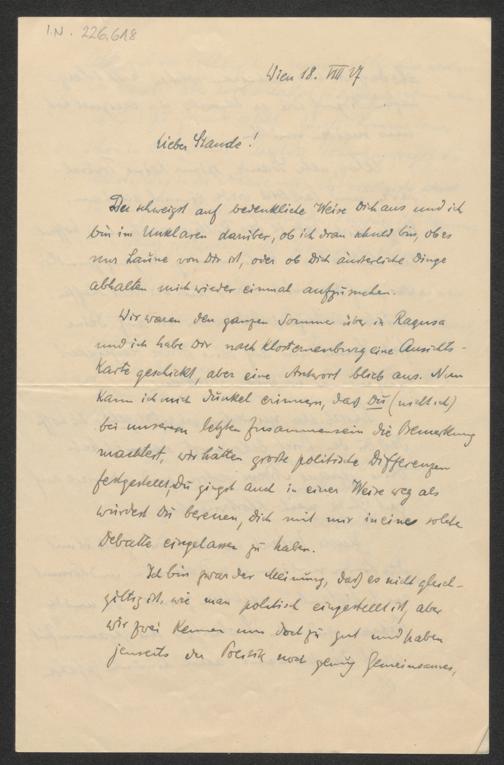 I.N. 226.618
Wien 18. VIII 27
Lieber Staude!
Du schweigst auf bedenkliche Weise Dich aus und ich
bin im Unklaren darüber, ob ich dran schuld bin, ob es
nur Laune von Dir ist, oder ob Dich äusserliche Dinge
abhalten mich wieder einmal aufzusuchen.
Wir waren den ganzen Sommer über in Ragusa
und ich habe Dir nach Klosterneuburg eine Ansichts-
Karte geschickt, aber eine Antwort blieb aus. Nun
kann ich mich dunkel erinnern, daß Du (nicht ich)
bei unserem letzten Zusammensein die Bemerkung
machtest, wir hätten große politische Differenzen
festgestellt, Du giengst auch in einer Weise weg als
würdest Du bereuen, Dich mit mir in eine solche
Debatte eingelassen zu haben.
Ich bin zwar der Meinung, daß es nicht gleich-
gültig ist, wie man politisch eingestellt ist, aber
wir zwei kennen uns doch zu gut und haben
jenseits der Politik noch genug Gemeinsames,